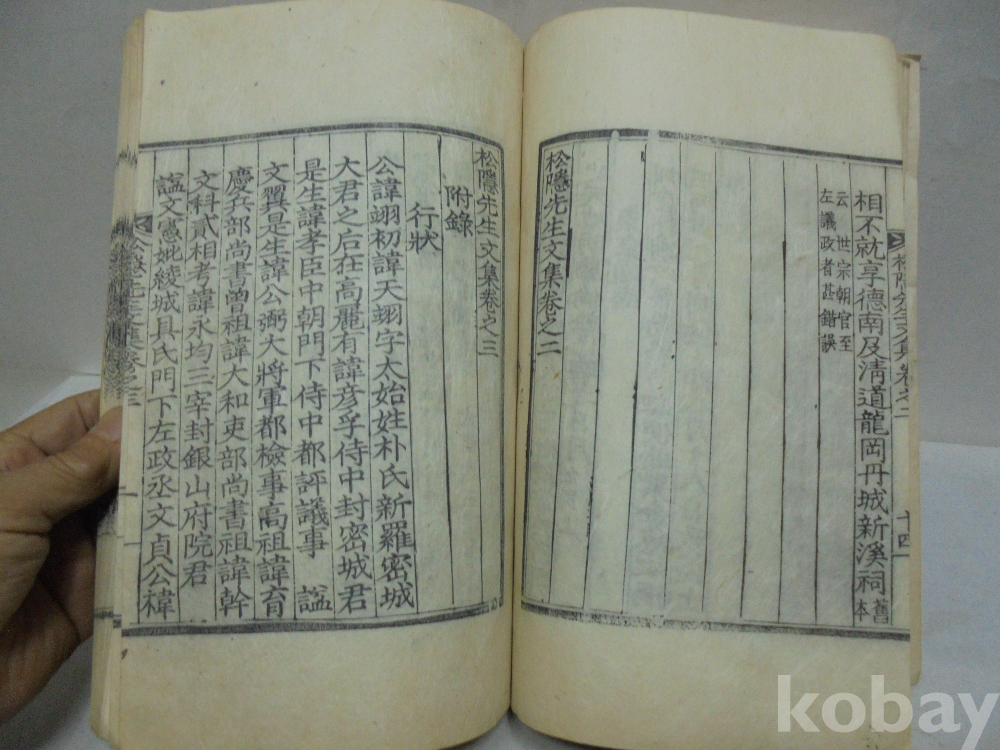 相不就享德南及淸道龍岡丹城新溪祠舊本
云 世宗朝官至
左議政者甚錯誤
松隱先生文集卷之二
松隱先生文集卷之二
十四
松隱先生文集卷之三
附錄
行狀
公諱翊初諱天翊字太始姓朴氏新羅密城
大君之后在高麗有諱彦孚侍中封密城君
是生諱孝臣中朝門下侍中都評議事 謚
文翼是生諱公弼大將軍都檢事高祖諱育
慶兵部尚書曾祖諱大和吏部尚書祖諱幹
文科貳相考諱永均三宰封銀山府院君
謚文憲妣綾城具氏門下左政丞文貞公褘
松隱先生文集卷之三
一
kobay